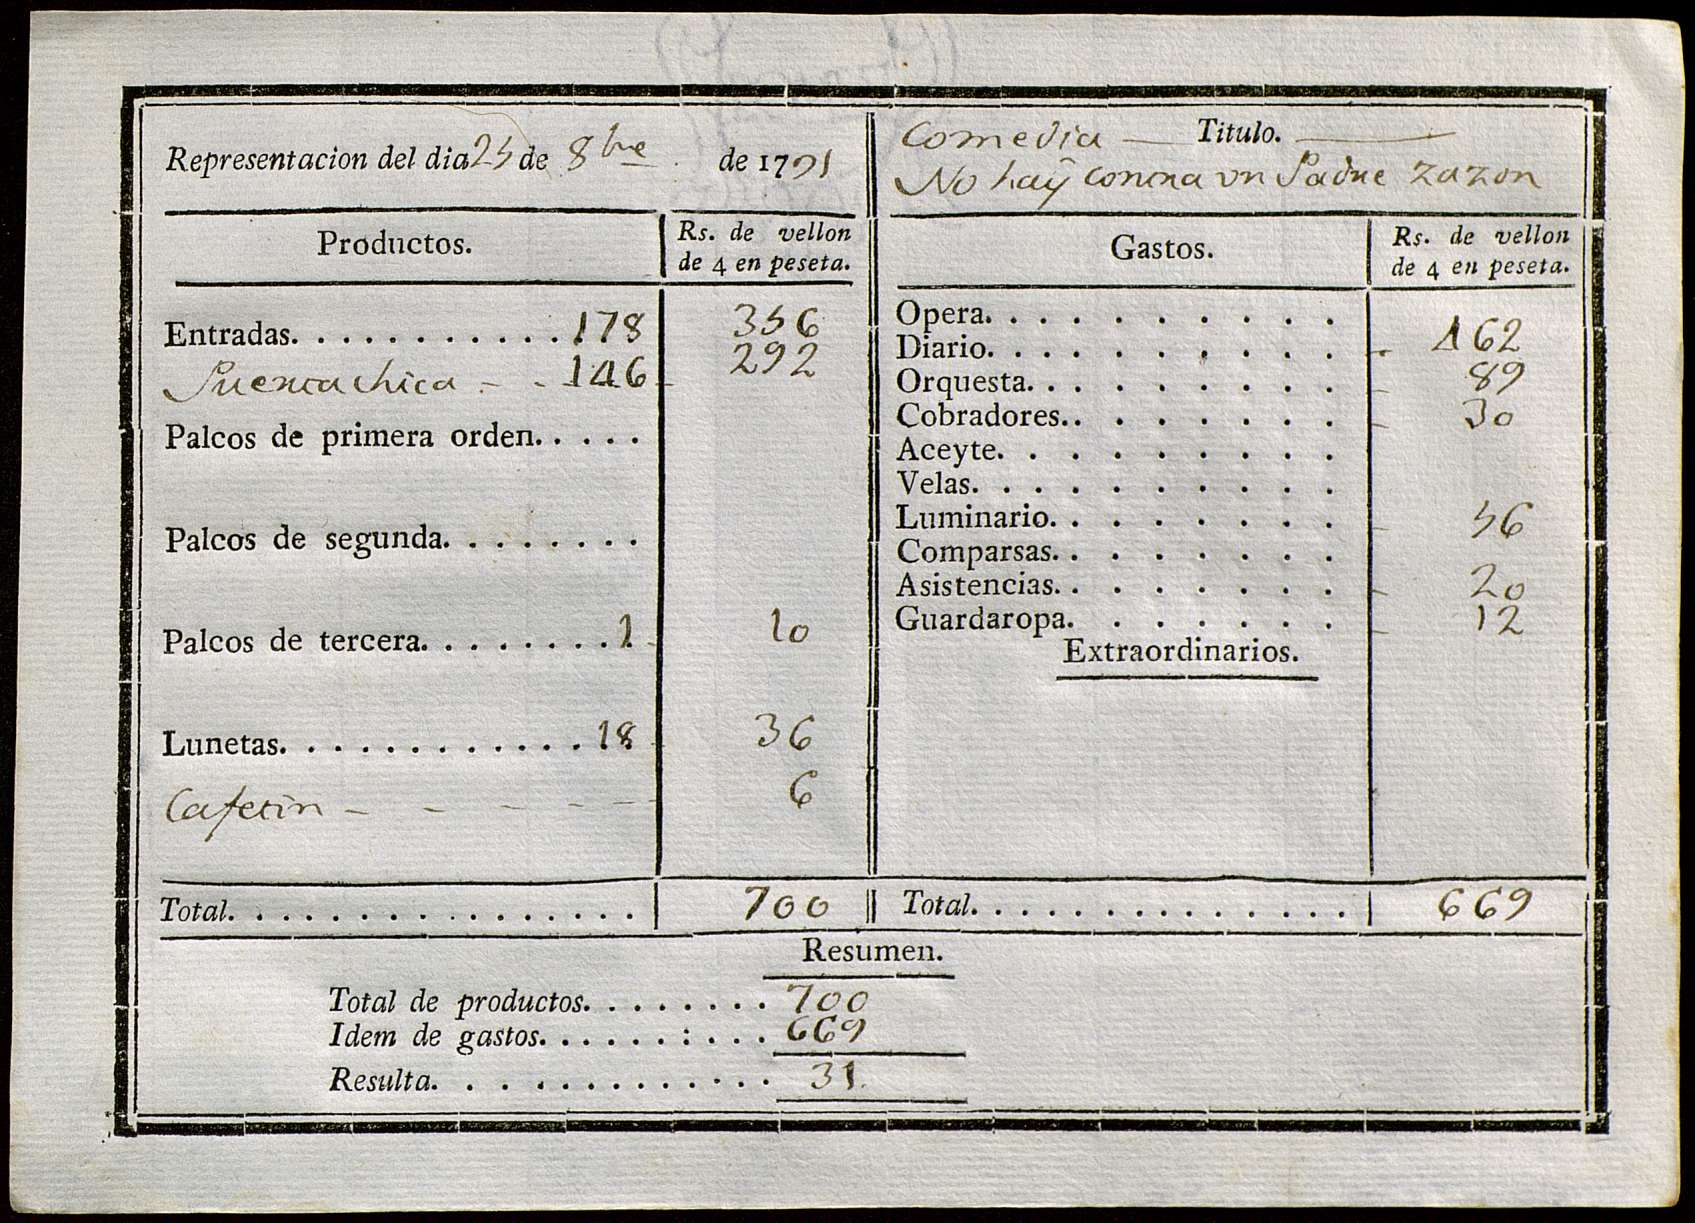 Representacion del dia 25 de 8bre de 1791
Comedia — Titulo. —
No haÿ contra vn Padre razon
Productos.
Rs. de vellon
de 4 en peseta.
Entradas. . . . . . . . . . . . 178 356
Puerta chica - - 146 - 292
Palcos de primera orden. . . . .
Palcos de segunda. . . . . . . .
Palcos de tercera. . . . . . . . 1 10
Lunetas. . . . . . . . . . . . . 18 36
Cafetin - - - - - - 6
Total. . . . . . . . . . . . . . . . 700
Gastos.
Rs. de vellon
de 4 en peseta.
Opera. . . . . . . . . .
Diario. . . . . . . . . . - 462
Orquesta. . . . . . . . . - 89
Cobradores. . . . . . . . - 30
Aceyte. . . . . . . . . .
Velas. . . . . . . . . . .
Luminario. . . . . . . . - 56
Comparsas. . . . . . . .
Asistencias. . . . . . . . - 20
Guardaropa. . . . . . . - 12
Extraordinarios.
Total. . . . . . . . . . . . . . 669
Resumen.
Total de productos. . . . . . . . 700
Idem de gastos. . . . . . : . . . 669
Resulta. . . . . . . . . . . . . 31.